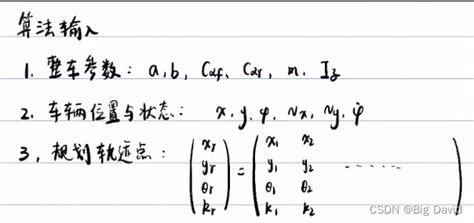 算法输入
1. 整车参数: a, b, Cαf, Cαr, m. Iz
2. 车辆位置与状态: x. y. φ, vx, vy. φ̇
3, 规划轨迹点: (xr yr θr kr) = (x1 x2
y1 y2 ······
θ1 θ2
k1 k2)
CSDN @Big David